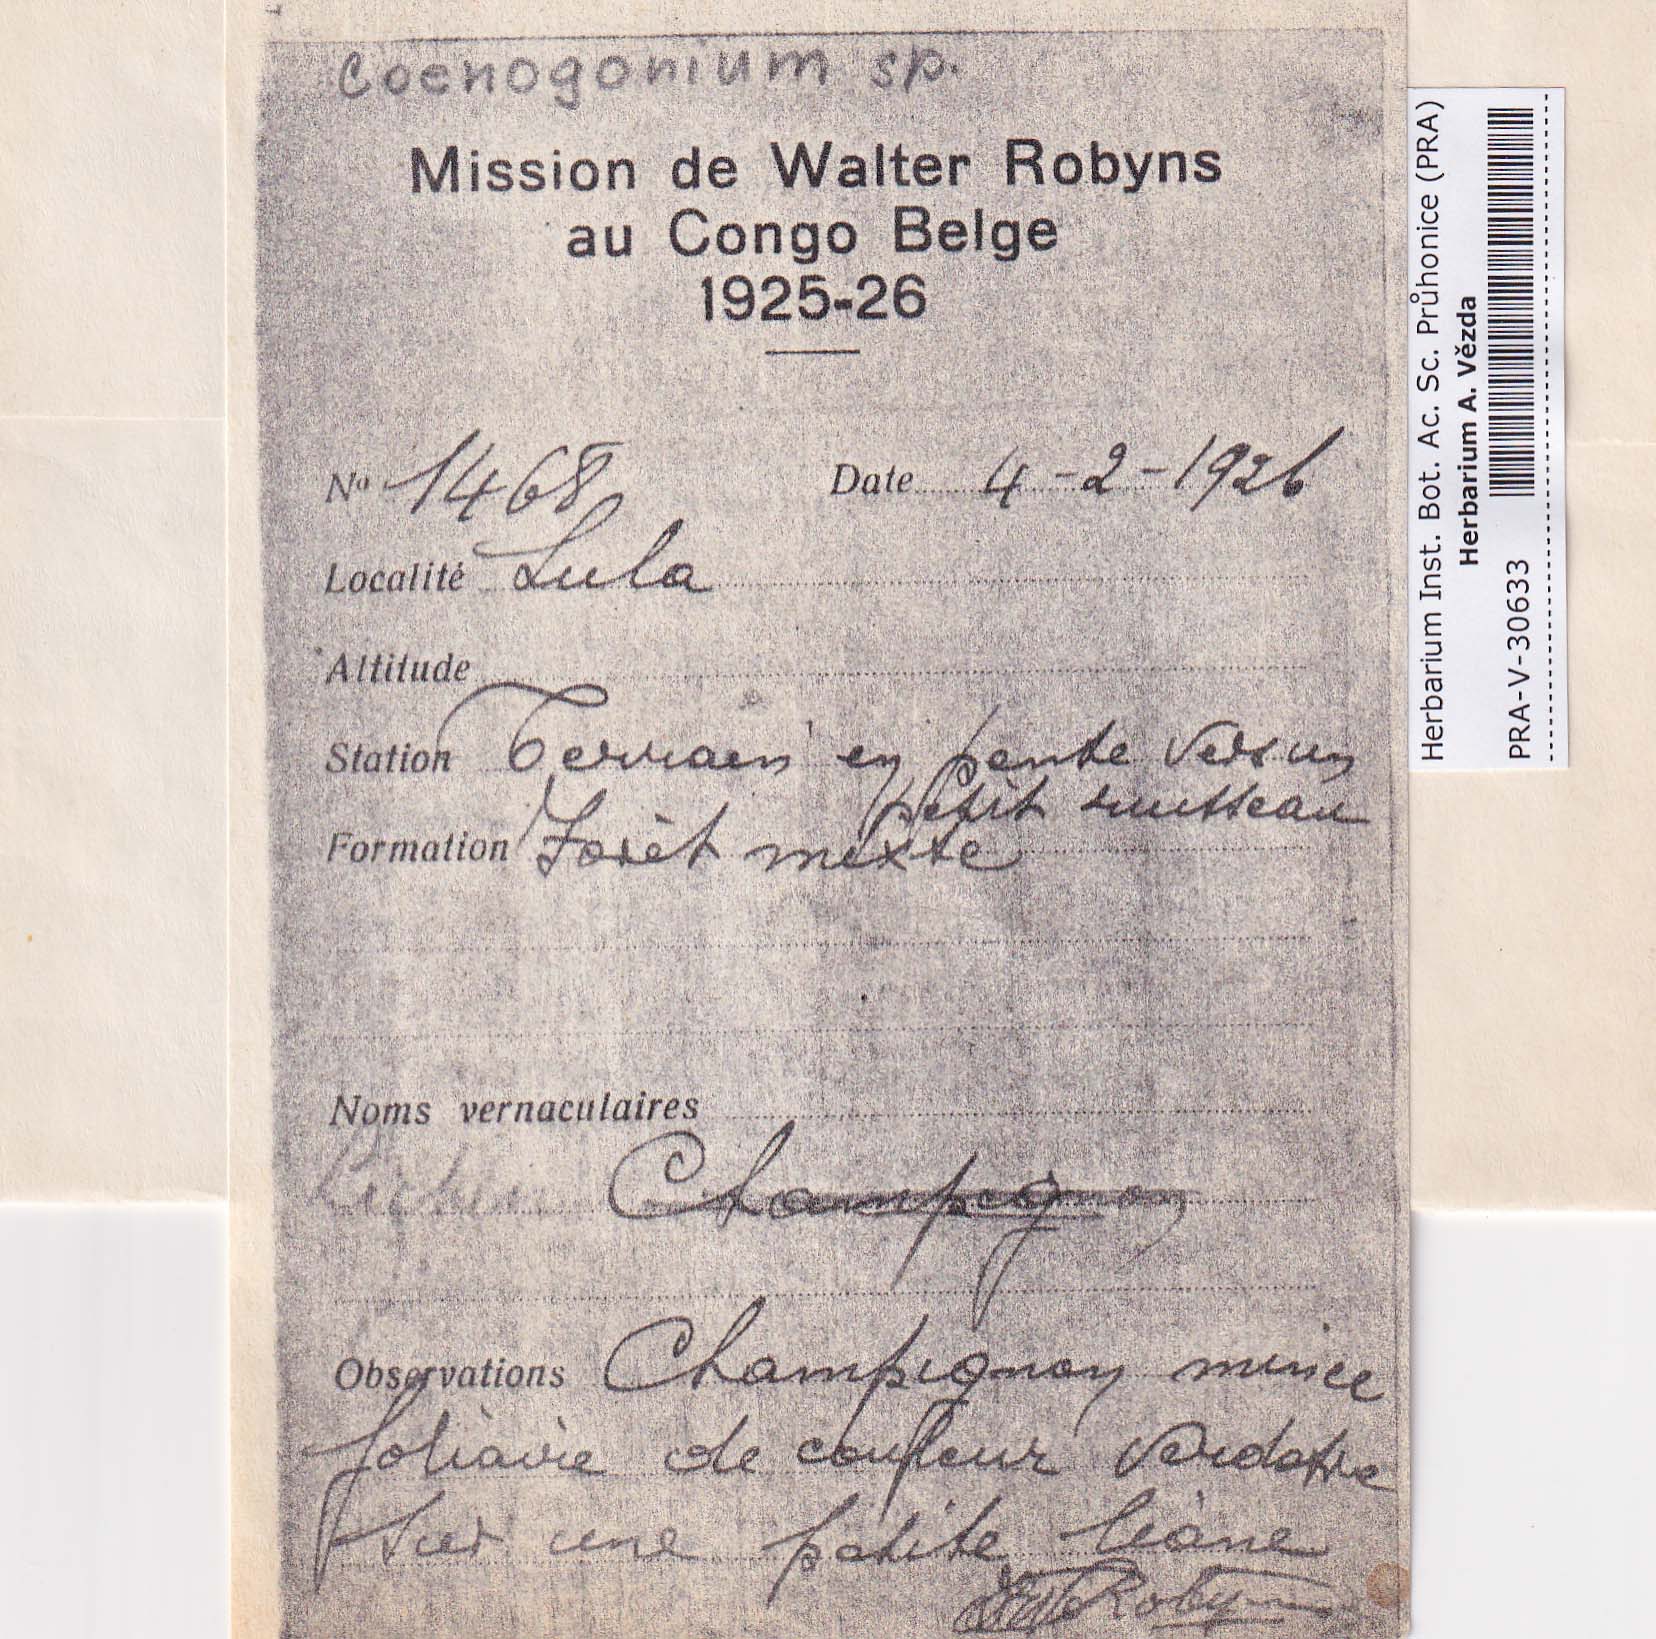 Coenogonium sp.
Mission de Walter Robyns
au Congo Belge
1925-26
No 1468 Date 4-2-1926
Localité Lula
Altitude
Station Terrain en pente vers un
petit ruisseau
Formation Forêt mixte
Noms vernaculaires
Lichen Champignon
Observations Champignon mince
foliaire de couleur verdatre
sur une petite liane
Robyns
Herbarium Inst. Bot. Ac. Sc. Průhonice (PRA)
Herbarium A. Vězda
PRA-V-30633